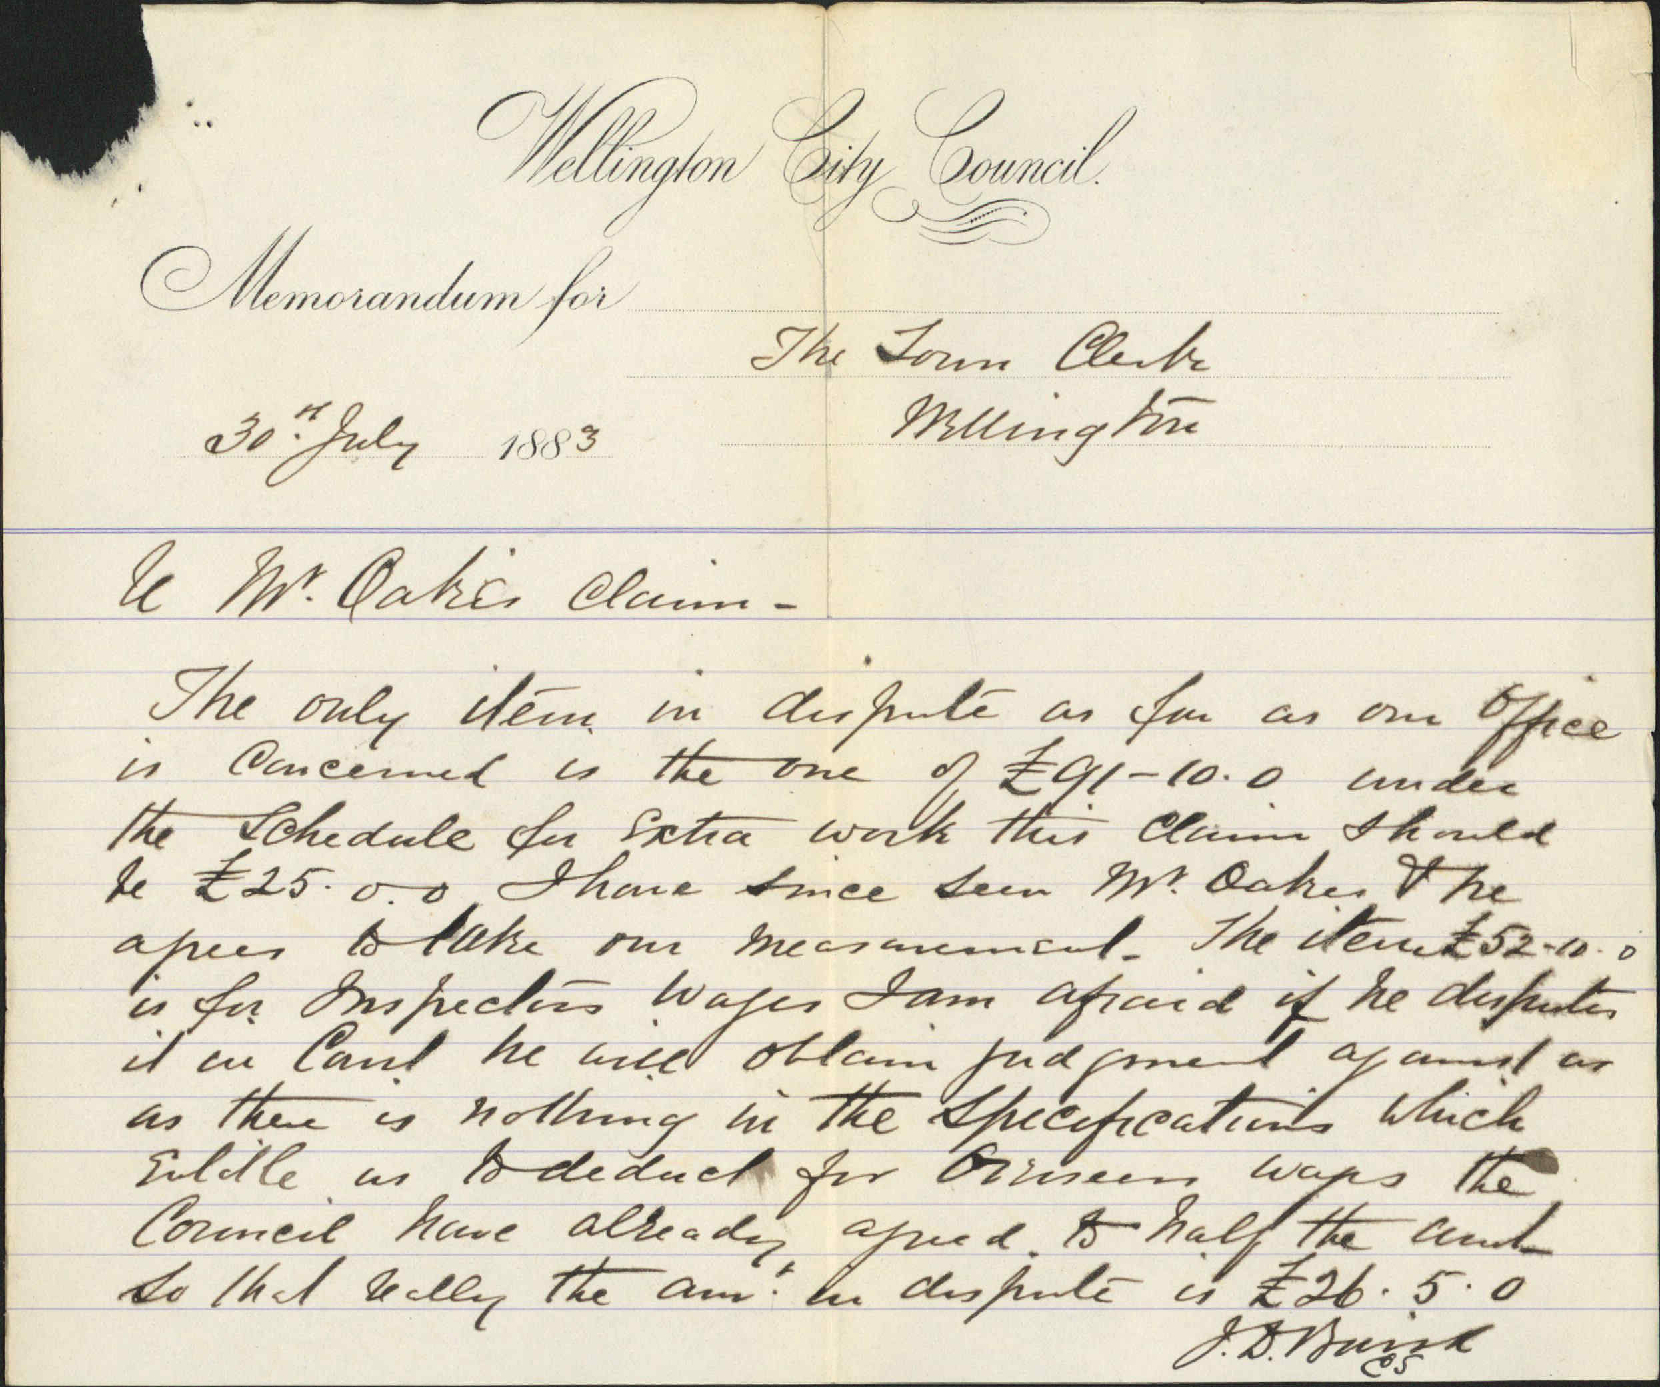 Wellington City Council.
Memorandum for
The Town Clerk
Wellington
30th July 1883
Re Mr. Oakes Claim -
The only item in dispute as far as our Office
is Concerned is the one of £91-10.0 under
the Schedule for Extra work this Claim should
be £25.0.0 I have since seen Mr. Oakes & he
agrees to take our measurement. The item £52-10.0
is for Inspectors Wages I am afraid if he disputes
it in Court he will obtain judgment against us
as there is nothing in the Specifications which
Entitle us to deduct for Overseers wages the
Council have already agreed to half the amt
so that really the amt. in dispute is £26.5.0
J.D. Baird
CS